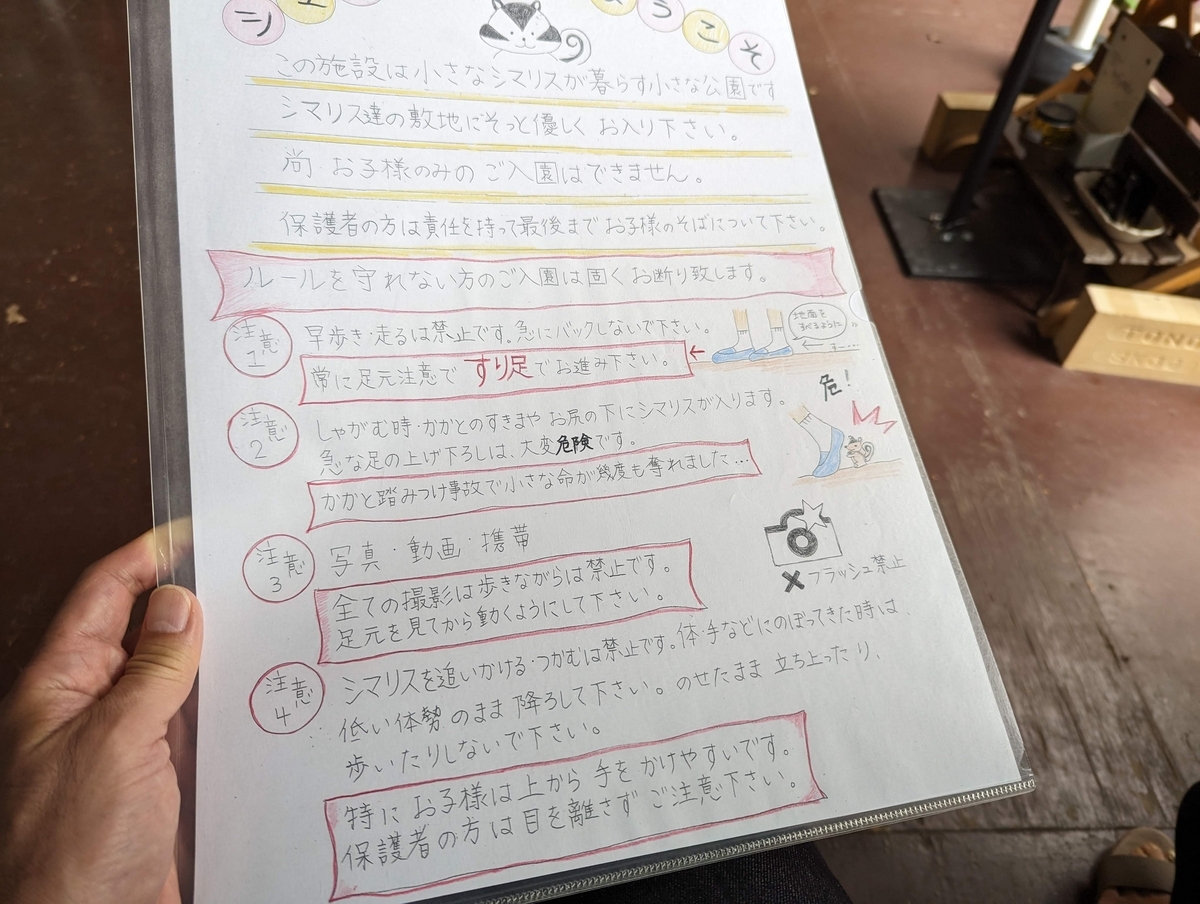 シ
ようこそ
この施設は小さなシマリスが暮らす小さな公園です
シマリス達の敷地にそっと優しくお入り下さい。
尚・お子様のみのご入園はできません。
保護者の方は責任を持って最後までお子様のそばについて下さい。
ルールを守れない方のご入園は固くお断り致します。
注意1
早歩き・走るは禁止です。急にバックしないで下さい。
常に足元注意ですり足でお進み下さい。
地面をすべるように
すー…
注意2
しゃがむ時・かかとのすきまやお尻の下にシマリスが入ります。
急な足の上げ下ろしは、大変危険です。
かかと踏みつけ事故で小さな命が幾度も奪れました…
危!
注意3
写真・動画・携帯
全ての撮影は歩きながらは禁止です。
足元を見てから動くようにして下さい。
×フラッシュ禁止
注意4
シマリスを追いかける・つかむは禁止です。体・手などにのぼってきた時は、
低い体勢のまま降ろして下さい。のせたまま立ち上ったり、
歩いたりしないで下さい。
特にお子様は上から手をかけやすいです。
保護者の方は目を離さずご注意下さい。